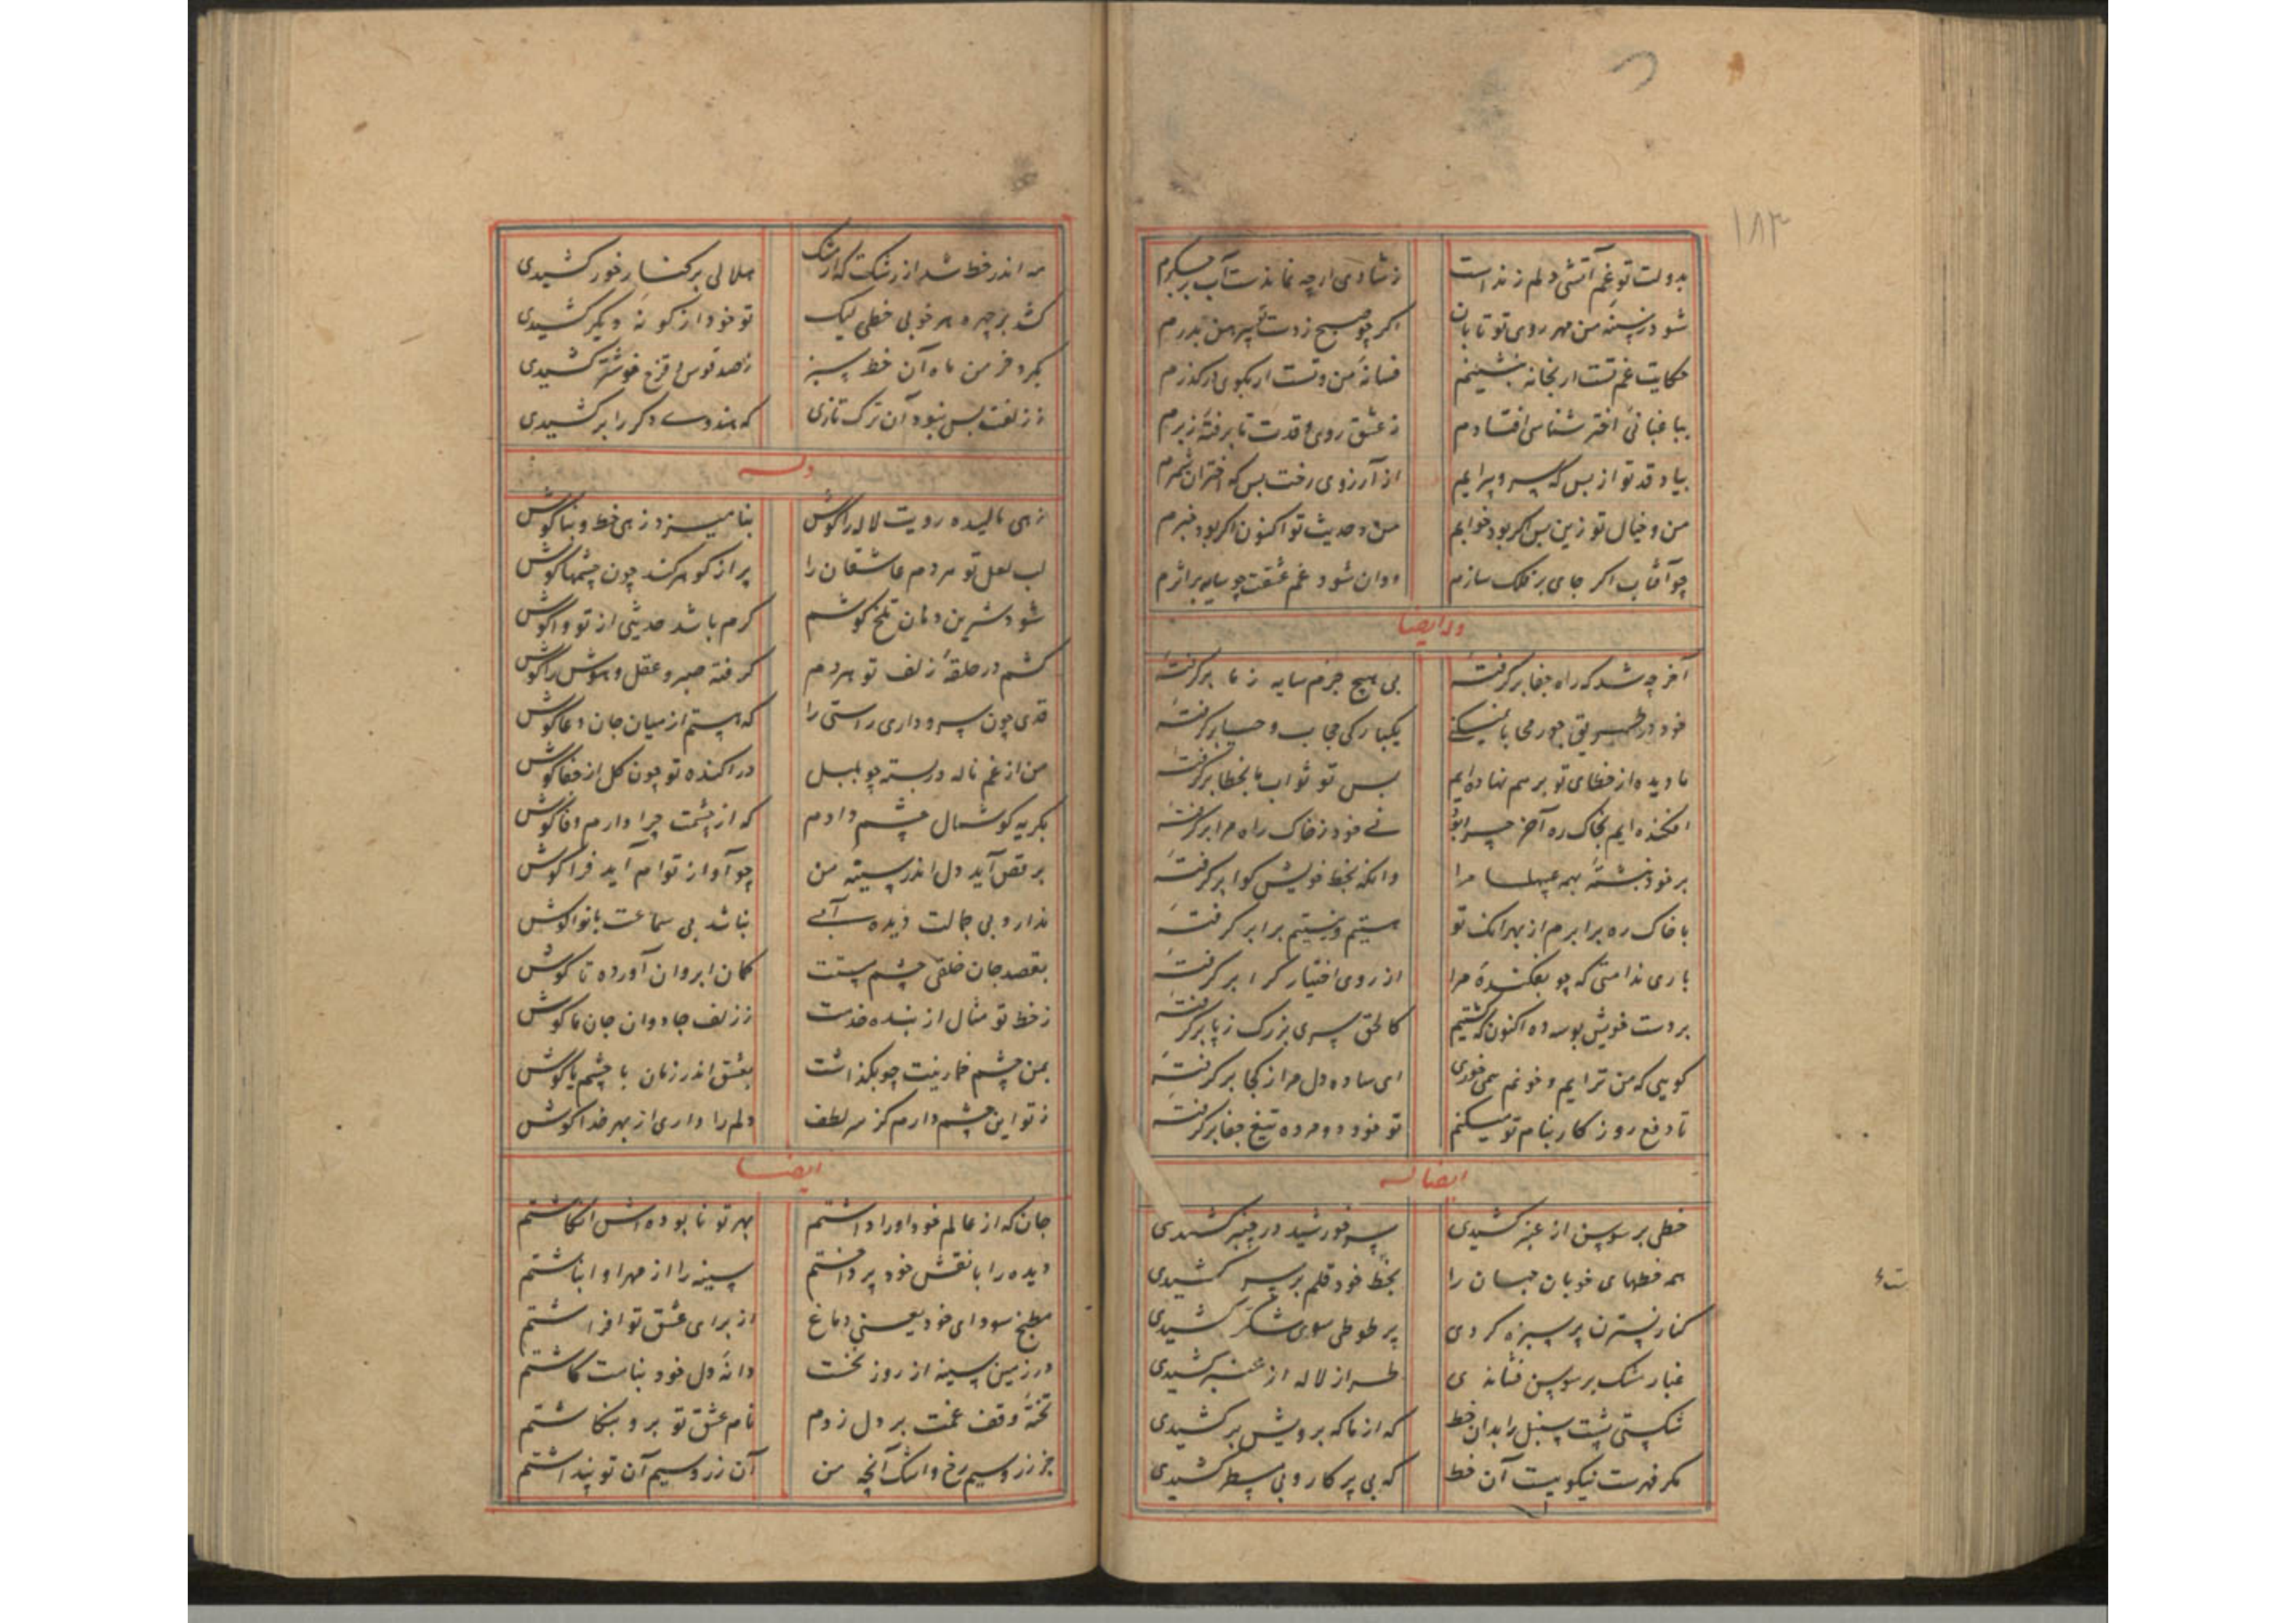 ۱۸۳
بدولت تو غم آتشی دلم زنده است
ز شادی ارچه نماندست آب بر جگرم
شود ز سینه من مهر روی تو تابان
اگر چو صبح ز دستت پیرهن بدرم
حکایت غم تست ار بخانه بنشینم
فسانه من و تست ار بکوی ار گذرم
بباغبانی اختر شناسی افتادم
ز عشق روی و قدت تا برفته زبرم
بیاد قد تو از بس که سرو پیرایم
از آرزوی رخت بس که اختران شمرم
من و خیال تو زین بس اگر بود خوابم
من و حدیث تو اکنون اگر بود خبرم
چو آفتاب اگر جای بر فلک سازم
دوان شود غم عشقت چو سایه بر اثرم
وله ایضا
آخر چه شد که راه جفا برگرفتهٔ
بی هیچ جرم سایه ز ما برگرفتهٔ
خود در طریق جور محابا نمیکنی
یکبارگی حجاب و حیا برگرفتهٔ
ما دیده از خطای تو بر هم نهاده‌ایم
بس تو ثواب ما بخطا برگرفتهٔ
افکنده‌ایم بخاک ره آخر چرا تو
نی خود ز خاک راه مرا برگرفتهٔ
بر خود نبشتهٔ همه عیبها مرا
وانگه بخط خویش گوا برگرفتهٔ
با خاک ره برابرم از بهر انک تو
هستیم و نیستیم برابر گرفتهٔ
باری ندامتی که چو بفکندهٔ مرا
از روی اختیار کرا برگرفتهٔ
بر دست خویش بوسه ده اکنون که کشتیم
کالحق سری بزرگ ز پا برگرفتهٔ
گویی که من ترایم و خونم همی خوری
ای ساده دل مرا ز کجا برگرفتهٔ
تا دفع روز کار بنام تو میکنم
تو خود دومرده تیغ جفا برگرفتهٔ
ایضا له
خطی بر سوسن از عنبر کشیدی
سر خورشید در چنبر کشیدی
همه خطهای خوبان جهان را
بخط خود قلم بر سر کشیدی
کنار نسترن پر سبزه کردی
پر طوطی سوی شکر کشیدی
غبار مشک بر سوسن فشاندی
طراز لاله از عنبر کشیدی
شکستی پشت سنبل را بدان خط
که از ناگه برویش بر کشیدی
مگر فهرست نیکوییست آن خط
که بی پرکار و بی مسطر کشیدی
مه اندر خط شد از رشکت که از مشک
هلالی بر کنار خور کشیدی
کشد بر چهره هر خوبی خطی لیک
تو خود از گونهٔ دیگر کشیدی
بگرد خرمن ماه آن خط سبز
ز صد قوس قزح خوشتر کشیدی
ز زلفت بس نبود آن ترک تازی
که هندوی دگر را بر کشیدی
وله
زهی مالیده رویت لاله را گوش
بنامیزد زهی خط و بناگوش
لب لعل تو هر دم عاشقان را
پر از گوهر کند چون چشمها گوش
شود شیرین دهان تلخ گوشم
گرم باشد حدیثی از تو وا گوش
کشم در حلقهٔ زلف تو هر دم
گرفته صبر و عقل و هوش را گوش
قدی چون سرو داری راستی را
که هستم از میان جان دعا گوش
من از غم ناله در بسته چو بلبل
دراکنده تو چون گل از جفا گوش
بگریه گوشمال چشم دادم
که از چشمت چرا دارم وفا گوش
برقص آید دل اندر سینه من
چو آواز تو ام آید فرا گوش
ندارد بی جمالت دیده آبی
نباشد بی سماعت با نوا گوش
بقصد جان خلقی چشم مستت
کمان ابروان آورده تا گوش
ز خط تو مثال از بنده خدمت
ز زلف جادوان جان ما گوش
بمن چشم خمارینت چو بگذاشت
بعشق اندر زمان با چشم یا گوش
ز تو این چشم دارم کز سر لطف
دلم را داری از بهر خدا گوش
ایضا
جان که از عالم خود او را داشتم
بهر تو نابوده‌اش انگاشتم
دیده را با نقش خود پرداختم
سینه را از مهر او انباشتم
مطبخ سودای خود یعنی دماغ
از برای عشق تو افراشتم
در زمین سینه از روز نخست
دانهٔ دل خود بنامت کاشتم
تختهٔ وقف غمت بر دل زدم
نام عشق تو برو بنگاشتم
جز زر و سیم رخ و اشک آنچه من
آن زر و سیم آن تو پنداشتم